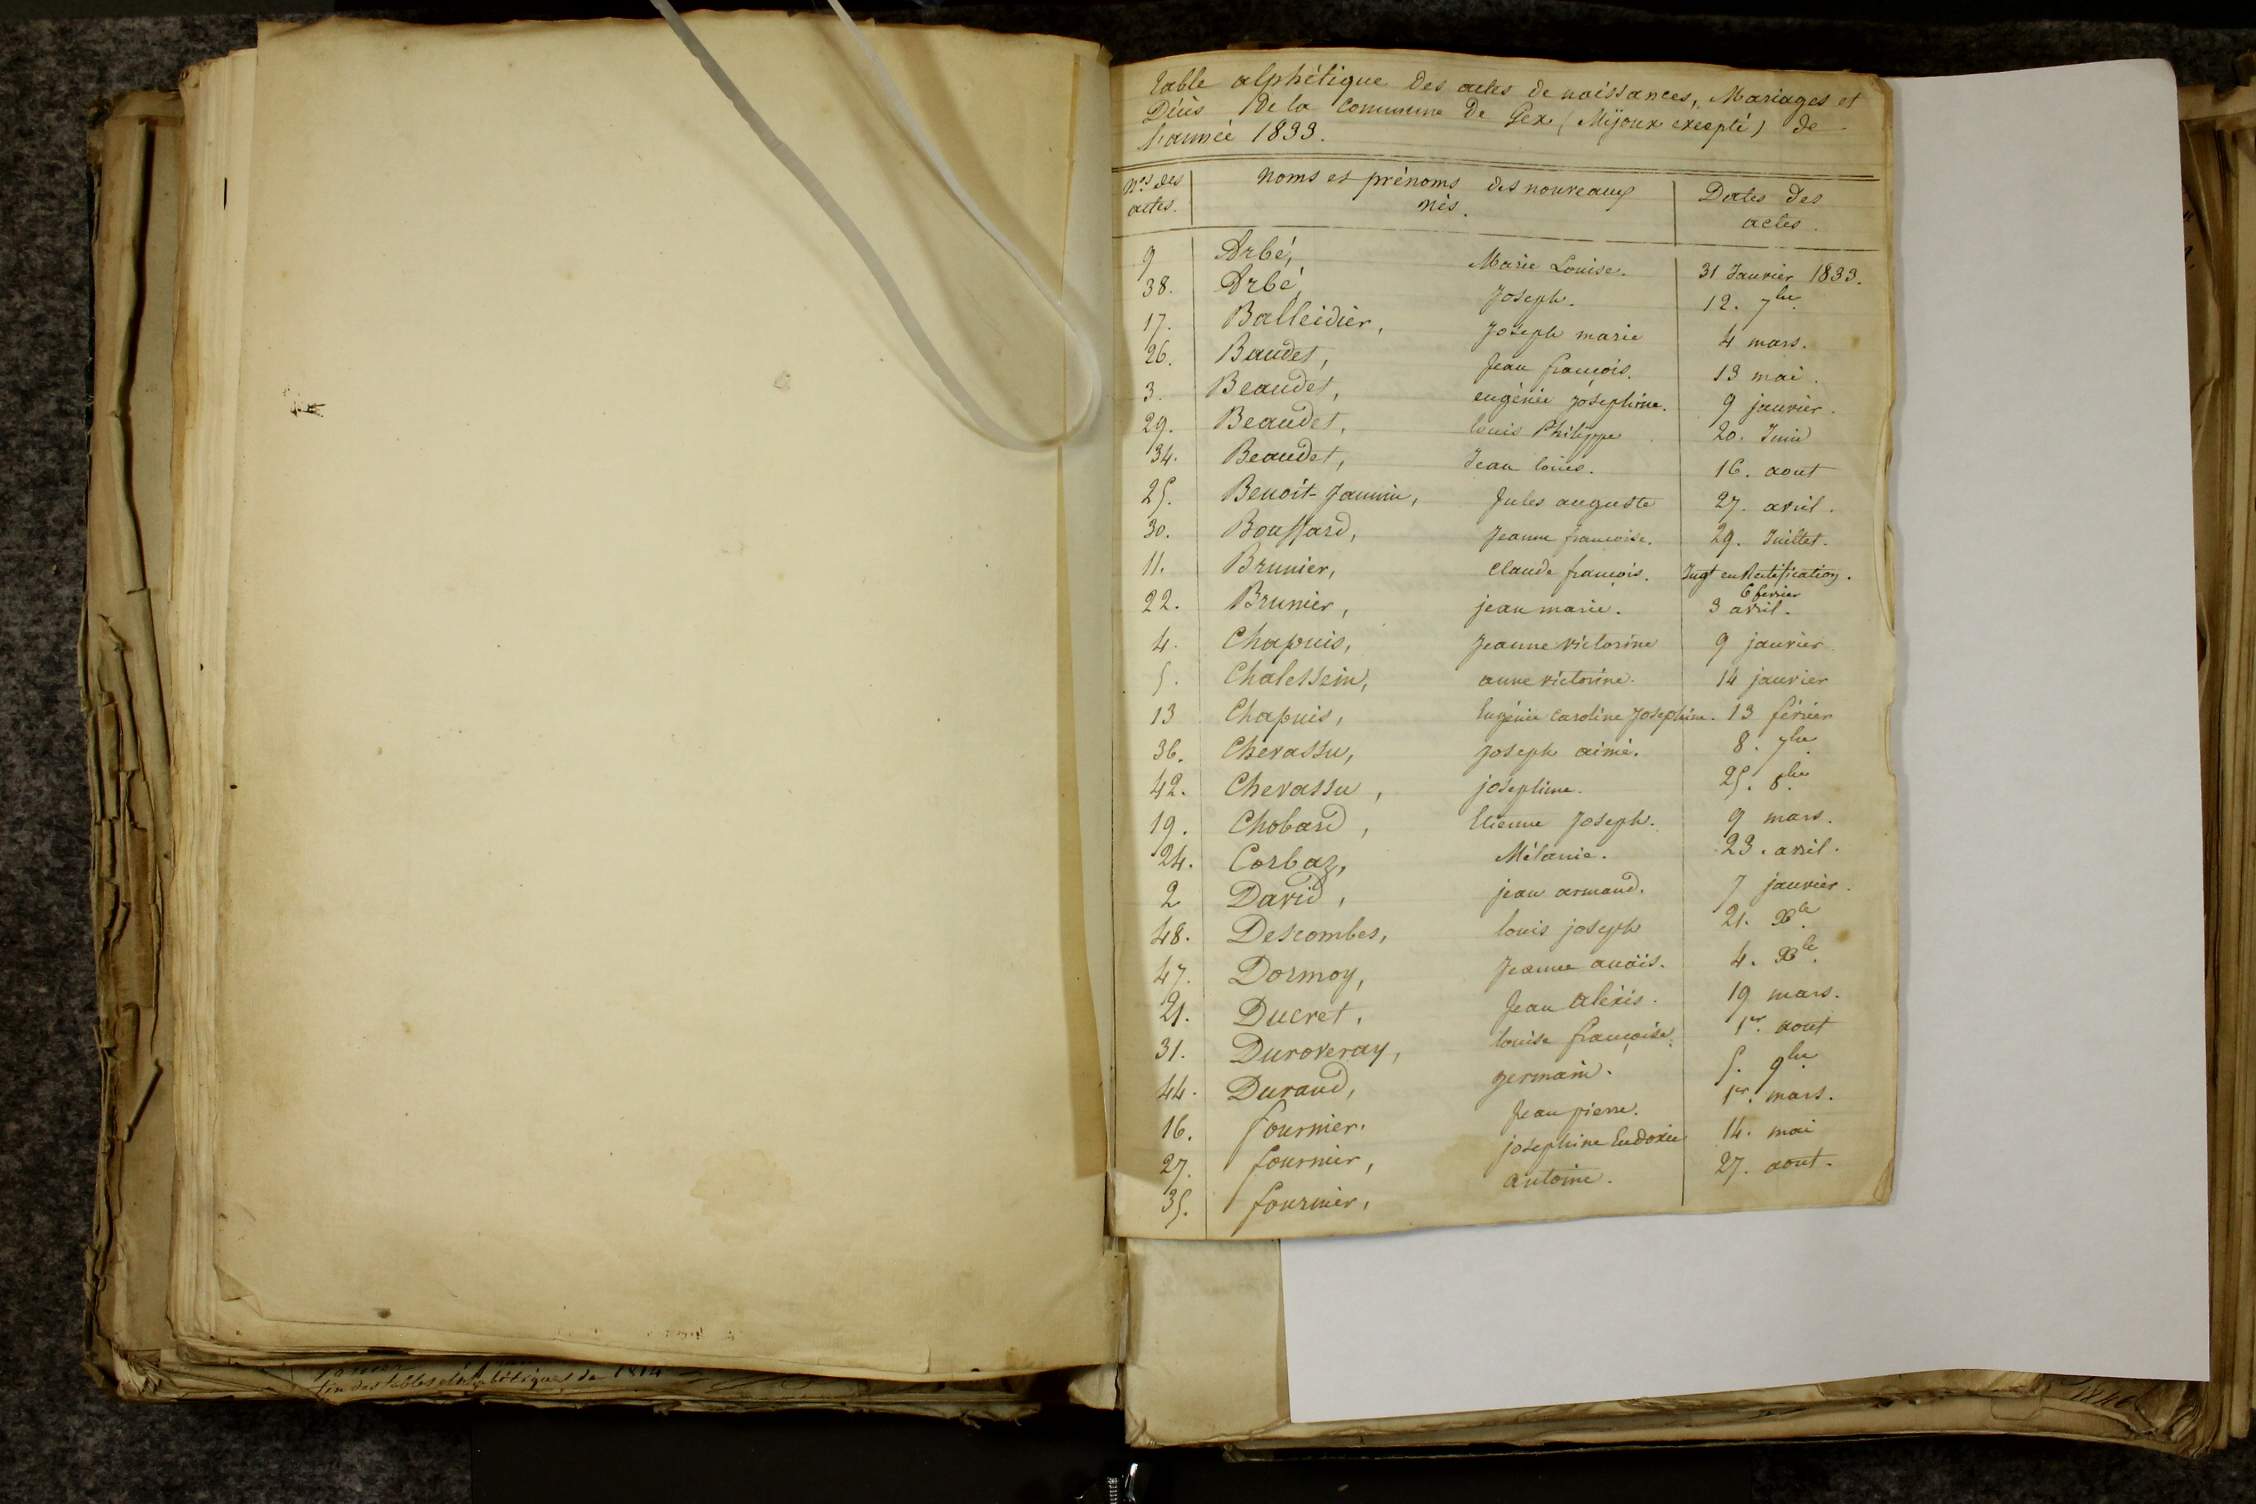 table alphétique des actes de naissances, Mariages et
Décès de la Commune de Gex (Mijoux excepté) de
l'année 1833.
Nos des actes. Noms et prénoms des nouveaux nés. Dates des actes.
9 Arbé, Marie Louise. 31 Janvier 1833.
38. Arbé, Joseph. 12. 7bre
17. Balleidier, Joseph marie 4 mars.
26. Baudet, Jean françois. 13 mai.
3. Beaudet, eugénie josephine. 9 janvier.
29. Beaudet, louis Philippe 20. Juin
34. Beaudet, Jean louis. 16. aout
25. Benoit-Jannin, Jules auguste 27. avril.
30. Bouffard, Jeanne francoise. 29. Juillet.
11. Brunier, Claude françois. Jugt en Rectification. 6 fevrier
22. Brunier, jean marie. 3 avril.
4. Chapuis, Jeanne victorine 9 janvier
5. Chalessein, anne victorine. 14 janvier
13 Chapuis, Eugénie Caroline Josephine. 13 février
36. Chevassu, Joseph aimé. 8. 7bre
42. Chevassu, josephine. 25. 8bre
19. Chobard, Etienne Joseph. 9 mars.
24. Corbaz, Mélanie. 23. avril.
2 David, jean armand. 7 janvier.
48. Descombes, louis joseph 21. Xbre
47. Dormoy, Jeanne anaïs. 4. Xbre
21. Ducret, Jean alexis. 19 mars.
31. Duroveray, louise françoise. 1er. aout
44. Durand, germain. 5. 9bre
16. fournier. Jean pierre. 1er. mars.
27. fournier, josephine Eudoxie 14. mai
35. fournier, antoine. 27. aout.
fin des tables alphabétiques de 1814